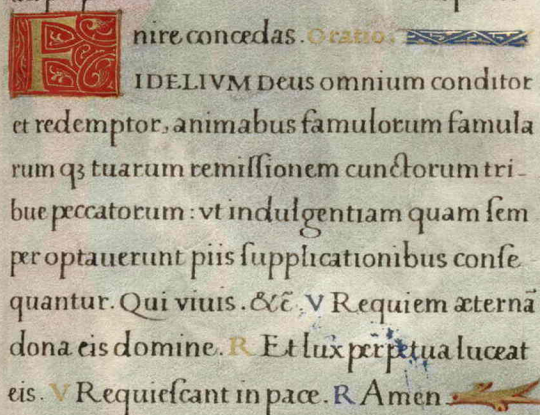 nire concedas. Oratio.
FIDELIVM Deus omnium conditor
et redemptor, animabus famulorum famula
rum qꝫ tuarum remiſſionem cunctorum tri-
bue peccatorum: vt indulgentiam quam ſem
per optauerunt piis ſupplicationibus conſe
quantur. Qui viuis. &c̄ V Requiem æternā
dona eis domine. R Et lux perpetua luceat
eis. V Requieſcant in pace. R Amen